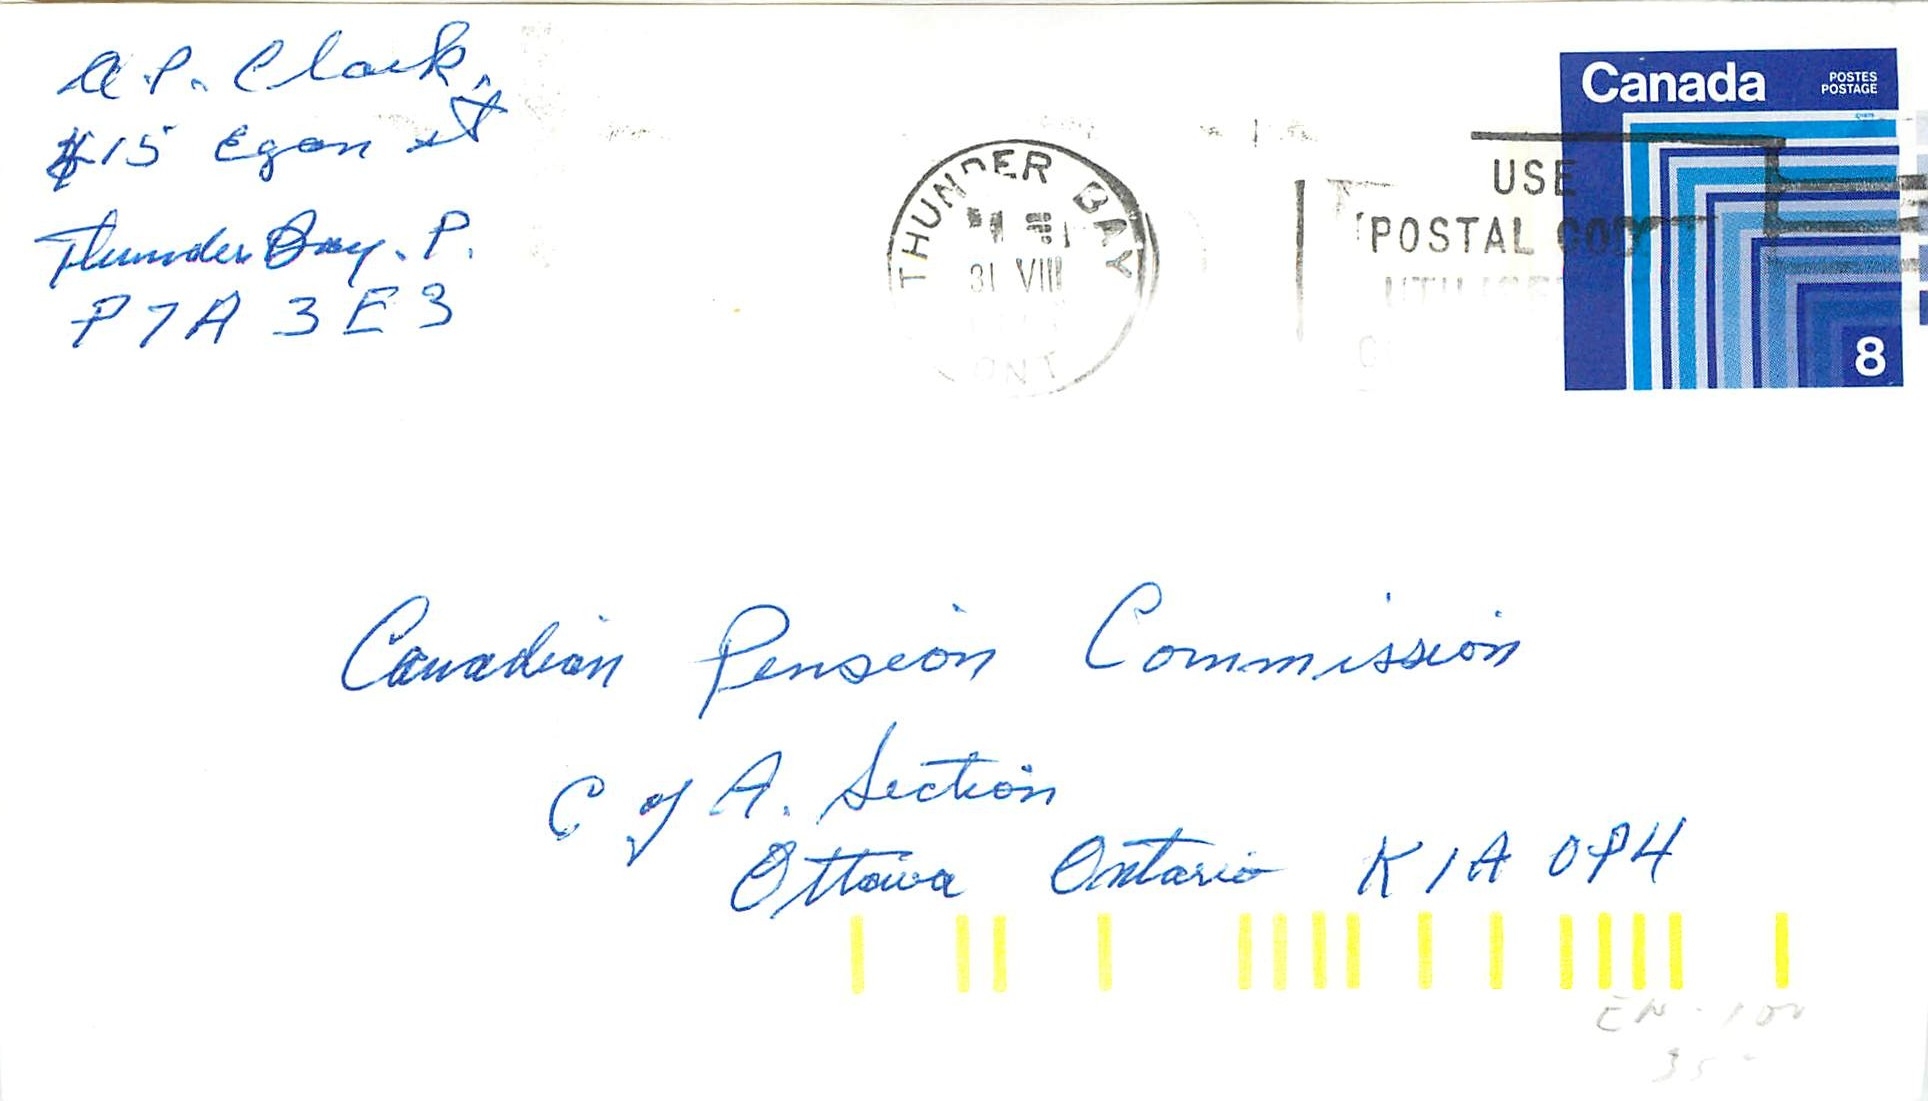 A. P. Clark,
#15 Egan St
Thunder Bay. P.
P7A 3E3
THUNDER BAY
31 VIII
ONT
USE
POSTAL CODE
Canada
POSTES
POSTAGE
8
Canadian Pension Commission
C of A. Section
Ottawa Ontario K1A 0P4
EN-100
35